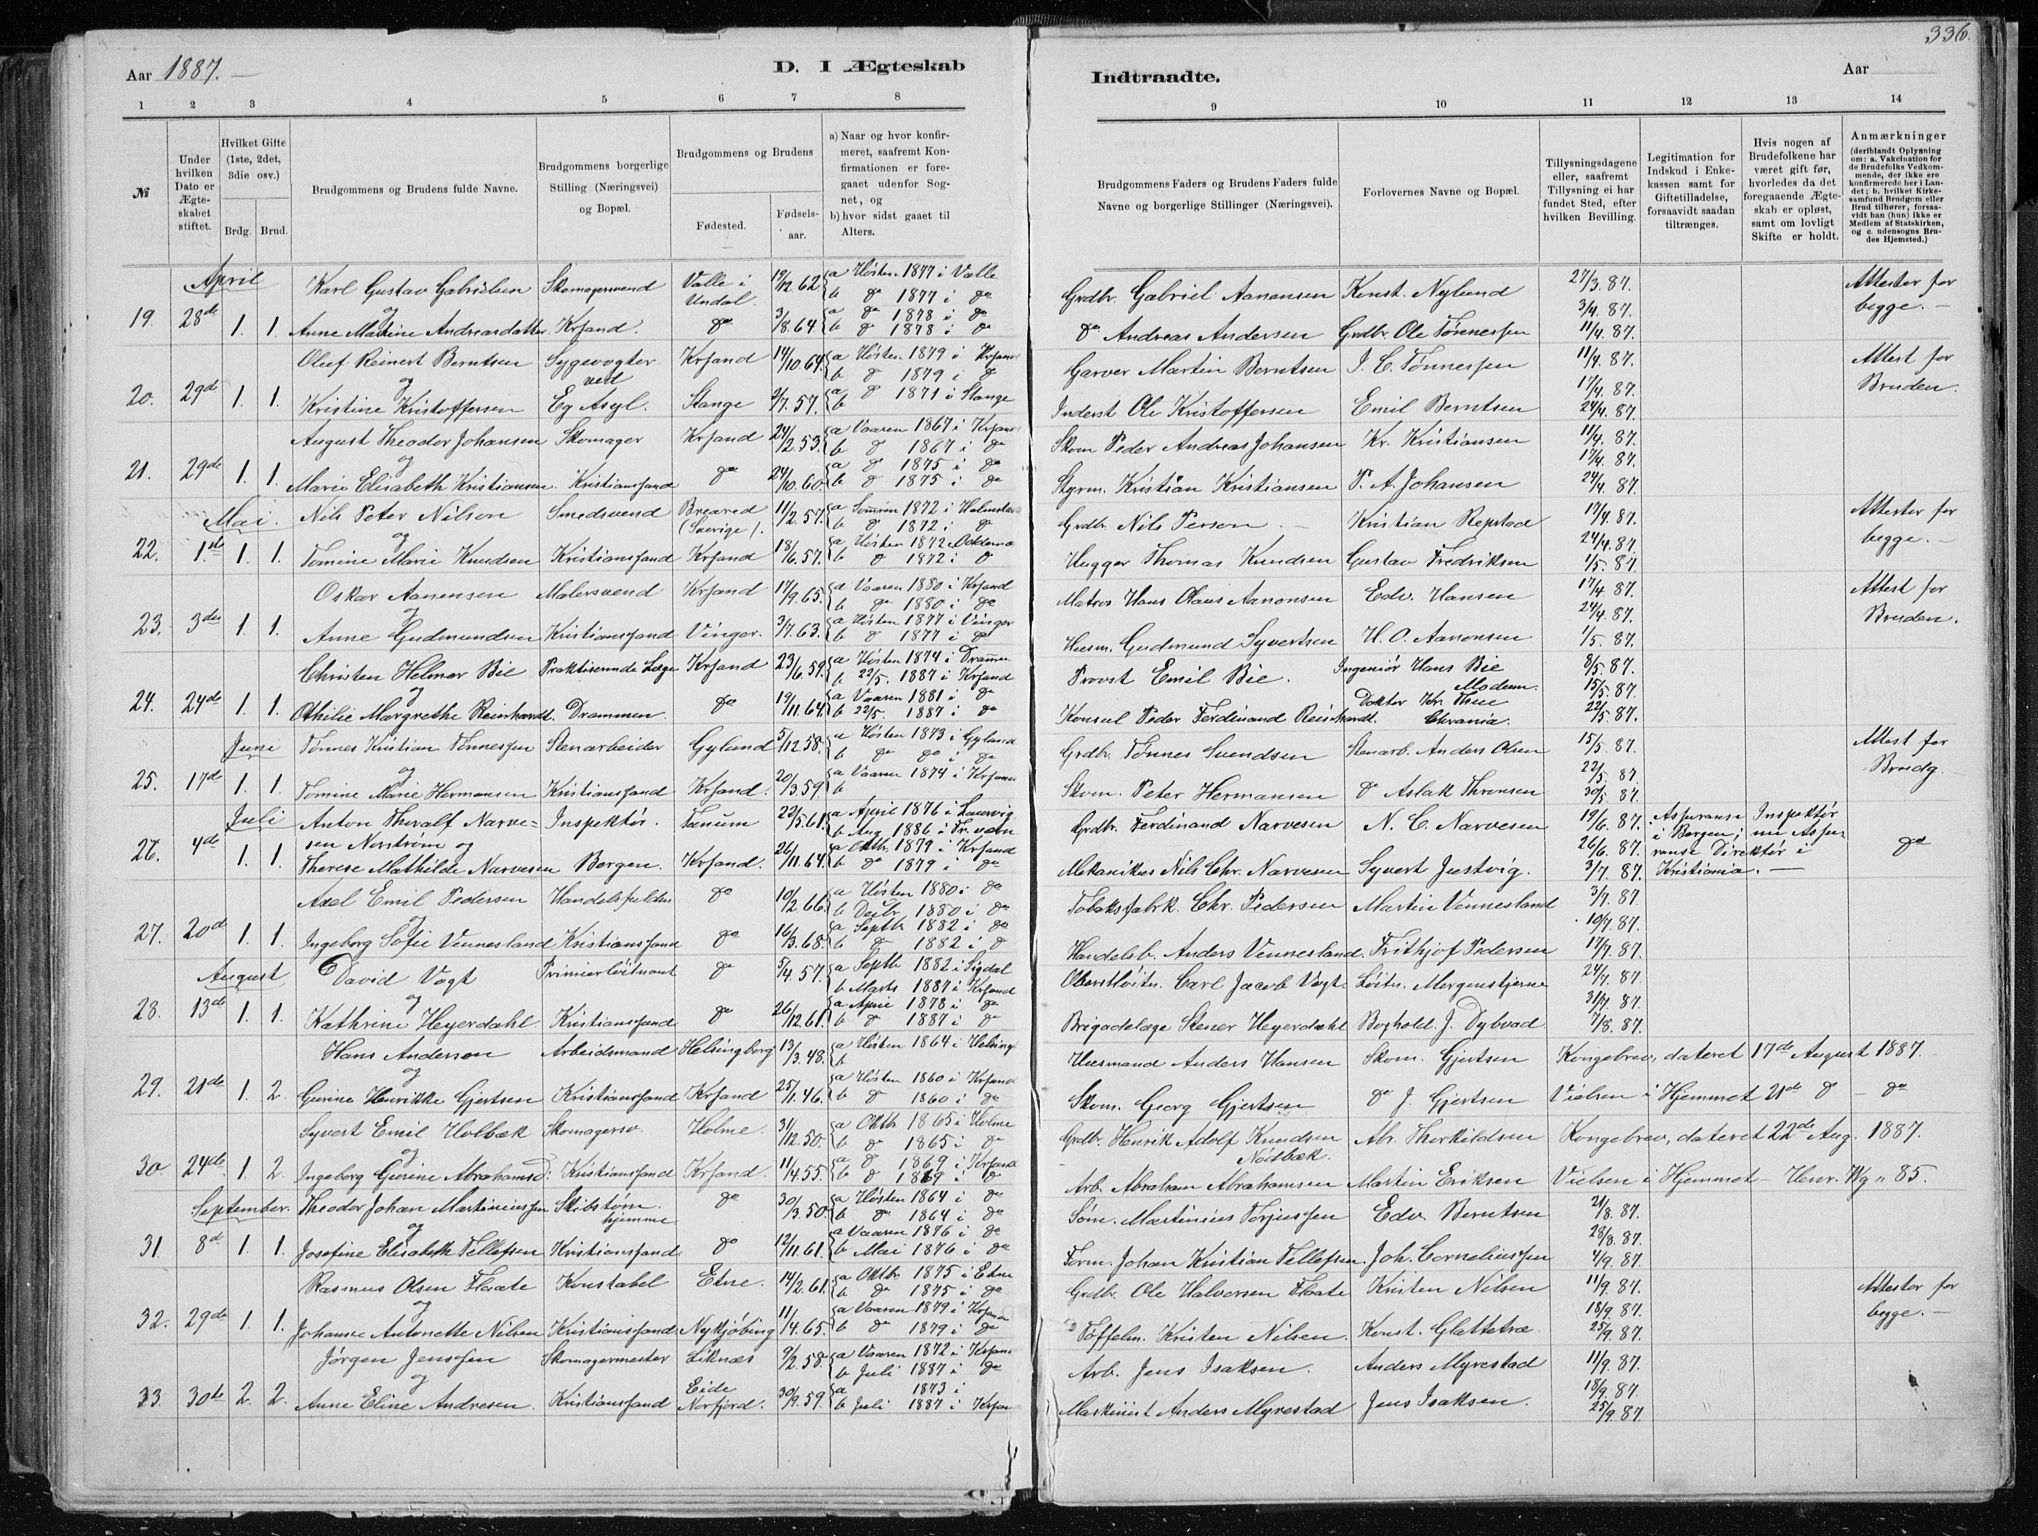 336.
Aar 1887. –
D. I Ægteskab
Indtraadte.
Aar
1 2 3 4 5 6 7 8 9 10 11 12 13 14
№
Under hvilken Dato er Ægteskabet stiftet.
Hvilket Gifte (1ste, 2det, 3die osv.)
Brdg. Brud.
Brudgommens og Brudens fulde Navne.
Brudgommens borgerlige Stilling (Næringsvei) og Bopæl.
Brudgommens og Brudens
Fødested.
Fødselsaar.
a) Naar og hvor konfirmeret, saafremt Konfirmationen er foregaaet udenfor Sognet, og
b) hvor sidst gaaet til Alters.
Brudgommens Faders og Brudens Faders fulde Navne og borgerlige Stillinger (Næringsvei).
Forlovernes Navne og Bopæl.
Tillysningsdagene eller, saafremt Tillysning ei har fundet Sted, efter hvilken Bevilling.
Legitimation for Indskud i Enkekassen samt for Giftetilladelse, forsaavidt saadan tiltrænges.
Hvis nogen af Brudefolkene har været gift før, hvorledes da det foregaaende Ægteskab er opløst, samt om lovligt Skifte er holdt.
Anmærkninger (deriblandt Oplysning om: a. Vakcination for de Brudefolks Vedkommende, der ikke ere konfirmerede her i Landet; b. hvilket Kirkesamfund Brudgom eller Brud tilhører, forsaavidt han (hun) ikke er Medlem af Statskirken, og c. udensogns Brudes Hjemsted.)
April Karl Gustav Gabrielsen Skomagersvend Valle i Undal. 19/12 62 a Høsten 1877 i Valle b do 1877 i do Grdbr. Gabriel Aanonsen Konst. Nylund 27/3. 87. Attester for begge. –
19. 28de 1. 1. og Anne Martine Andreasdatter Krsand. do 3/8. 64 a do 1878 i do b do 1878 i do do Andreas Andersen Grdbr. Ole Tønnessen 3/4. 87. 11/4. 87.
Oluf Reinert Berntsen Sygevogter ved Krsand 14/10. 64. a Høsten 1879 i Krsand b do 1879 i do Garver Martin Berntsen J. C. Tønnessen 11/4. 87. Attest for Bruden.
20. 29de 1. 1. og Kristine Kristoffersen Eg Asyl. Stange 2/7. 57. a b do 1871 i Stange Inderst Ole Kristoffersen Emil Berntsen 17/4. 87. 24/4. 87.
August Theodor Johansen Skomager Krsand 24/2. 53. a Vaaren 1867 i Krsand b do 1867 i do Skom Peder Andreas Johansen Kr. Kristiansen 11/4. 87. 17/4. 87.
21. 29de 1. 1. og Marie Elisabeth Kristiansen Kristianssand do 24/10. 60. a do 1875 i do b do 1875 i do Styrm. Kristian Kristiansen P. A. Johansen 24/4. 87.
Mai. Nils Peter Nilson Smedsvend Breared (Sverige). 11/2. 57. a Somren 1872 i b do 1872 i do Grdbr Nils Person. – Kristian Repstad 17/4. 87. Attester for begge. –
22. 1ste 1. 1. og Tomine Marie Knudsen Kristianssand Krsand 18/6. 57. a Høsten 1872 i b do 1872 i Hugger Thomas Knudsen Gustav Fredriksen 24/4. 87. 1/5. 87.
Oskar Aanensen Malersvend Krsand 17/9. 65. a Vaaren 1880 i Krsand b do 1880 i do Matros Hans Olaus Aanonsen Edv. Hansen 17/4. 87. Attest for Bruden.
23. 3die 1. 1. og Anne Gudmundsen Kristianssand Vinger. 3/7. 63. a Høsten 1877 i Vinger b do 1877 i do Husm. Gudmund Syvertsen H. O. Aanonsen 24/4. 87. 1/5. 87.
Christen Helmer Bie Praktiserende Læge Krsand 23/6. 59. a Høsten 1874 i Drammen b 22/5. 1887 i Krsand Provst Emil Bie. Ingeniør Hans Bie Modum. 8/5. 87.
24. 24de 1. 1. og Othilie Margrethe Reinhardt. Drammen. do 19/11. 64. a Vaaren 1881 i do b 22/5. 1887 i do Konsul Peder Ferdinand Reinhardt. Doktor Kr. Thue Chrania. 15/5. 87. 22/5. 87.
Juni Tønnes Kristian Tønnessen Stenarbeider Gyland 5/12. 58. a Høsten 1873 i Gyland b do do i do Grdbr. Tønnes Svendsen Stenarb. Anders Olsen 15/5. 87. Attest for Brudg.
25. 17de 1. 1. og Tomine Marie Hermansen Kristianssand Krsand. 20/3. 59. a Vaaren 1874 i Krsand b Skom. Peter Hermansen do Aslak Thronsen 22/5. 87. 30/5. 87.
Juli Anton Thoralf Narvesen Norstrøm og Inspektør. Tanum 22/5. 61. a April 1876 i Laurvig b Aug. 1886 i Grdbr. Ferdinand Narvesen N. C. Narvesen 19/6. 87. Assurance Inspektør i Bergen; nu Assurance Direktør i Kristiania. – do
26. 4de 1. 1. Therese Mathilde Narvesen Bergen. Krsand. 26/11. 64. a Oktbr. 1879 i Krsand b do 1879 i do Mekanikus Nils Chr. Narvesen Syvert Justvig. 26/6. 87. 3/7. 87.
Axel Emil Pedersen Handelsfuldm do 10/2. 66. a Høsten 1880 i do b Dcbr 1880 i do Tobaksfabrk. Chr. Pedersen Martin Vennesland 3/7. 87.
27. 20de 1. 1. og Ingeborg Sofie Vennesland Kristianssand do 16/3. 68. a Septbr 1882 i do b do 1882 i do Handelsb. Anders Vennesland. Frithjof Pedersen 10/7. 87. 17/7. 87.
August David Vogt Primierløitnant do 5/4. 57. a Septb 1882 i Sigdal b Marts 1887 i Krsand Oberstløitn. Carl Jacob Vogt Løitn. Morgenstjerne 24/7. 87.
28. 13de 1. 1. og Kathrine Heyerdahl. Kristianssand do 26/12. 61. a April 1878 i do b do 1887 i do Brigadelæge Stener Heyerdahl Boghold. J. Dybvad 31/7. 87. 7/8. 87.
Hans Anderson Arbeidsmand Helsingborg 13/3. 48. a Høsten 1864 i Helsing b Husmand Anders Hansen Skom. Gjertsen Kongebrev, dateret 17de August 1887. –
29. 21de 1. 2. og Gurine Henrikke Gjertsen Kristianssand Krsand 25/1. 46. a Høsten 1860 i Krsand b do 1860 i do Skom. Georg Gjertsen do J. Gjertsen Vielsen i Hjemmet 21de do – do
Syvert Emil Holbæk Skomagersv. Holme. 31/12. 50. a Oktb. 1865 i Holme b do 1865 i do Grdbr. Henrik Adolf Knudsen Nødbæk. Abr. Thorkildsen Kongebrev, dateret 22de Aug. 1887.
30. 24de 1. 2. og Ingeborg Gurine Abrahamsd: Kristianssand Krsand. 11/4. 55. a do 1869 i Krsand b do 1869 i do Arb. Abraham Abrahamsen Martin Eriksen Vielsen i Hjemmet – Henr. Wg " 85.
September. Theodor Johan Martiniussen Skibstøm. hjemme do 30/3. 50. a Høsten 1864 i do b do 1864 i do Tøm. Martinius Torjussen Edv. Berntsen 21/8. 87.
31. 8de 1. 1. og Josefine Elisabeth Tellefsen Kristianssand do 12/11. 61. a Vaaren 1876 i do b Mai 1876 i do Form. Johan Kristian Tellefsen. Joh. Corneliussen 28/8. 87. 4/9. 87.
Rasmus Olsen Floate Konstabel Etne. 14/2. 61. a Oktbr 1875 i Etne b do 1875 i do Grdbr. Ole Halvorsen Floate Kristen Nilsen 11/9. 87. Attester for begge. –
32. 29de 1. 1. og Johanne Antonette Nilsen Kristianssand Nykjøbing 11/4. 65. a Vaaren 1879 i Krsand b do 1879 i do Tøffelm. Kristen Nilsen. Konst. Glattetræ. 18/9. 87. 25/9. 87.
Jørgen Jenssen Skomagermester Liknæs 9/2. 58. a Vaaren 1872 i Krsand b Juli 1887 i do Arb. Jens Isaksen. Anders Myrestad 11/9. 87.
33. 30te 2. 2. og Anne Eline Andresen. Kristianssand Eide Norfjord. 30/9. 59. a 1873 i b Juli 1887 i Krsand Maskinist Anders Myrestad Jens Isaksen. 18/9. 87. 25/9. 87.